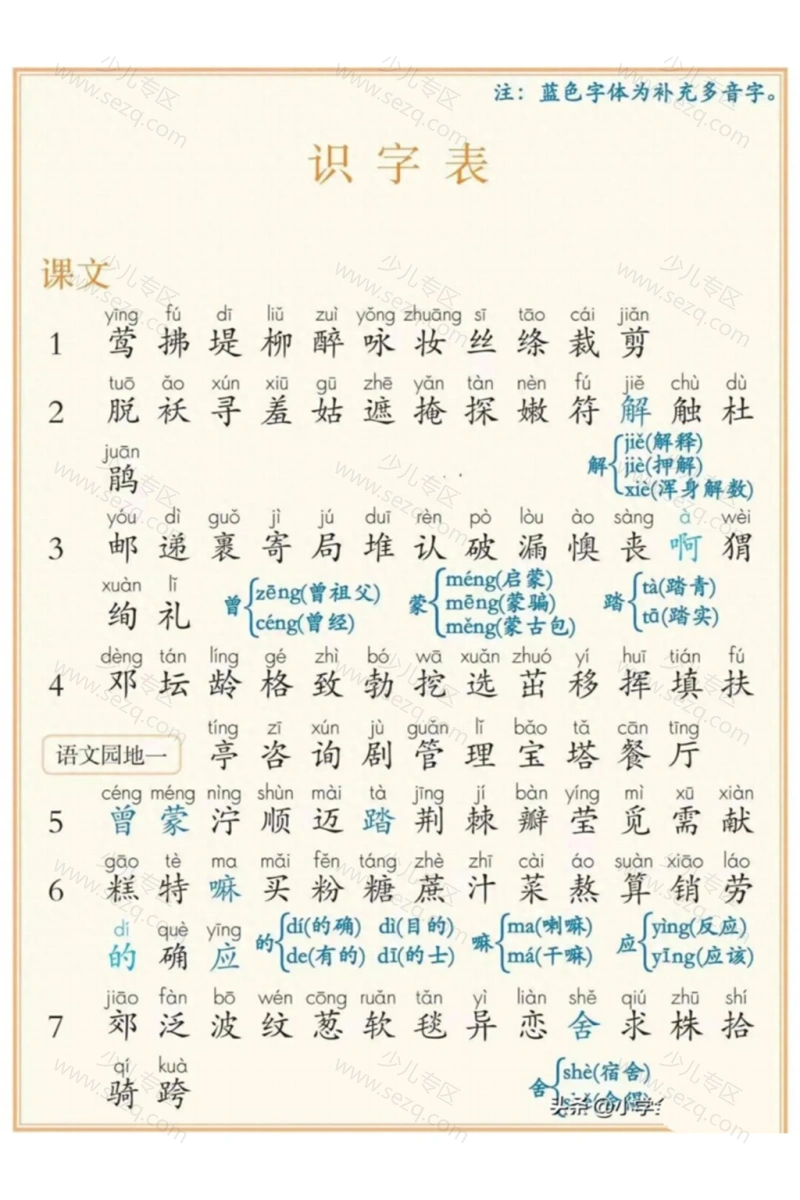 注：蓝色字体为补充多音字。
识字表
课文
yīng fú dī liǔ zuì yǒng zhuāng sī tāo cái jiǎn
1 莺 拂 堤 柳 醉 咏 妆 丝 绦 裁 剪
tuō ǎo xún xiū gū zhē yǎn tàn nèn fú jiě chù dù
2 脱 袄 寻 羞 姑 遮 掩 探 嫩 符 解 触 杜
juān
鹃
解 jiě(解释) jiè(押解) xiè(浑身解数)
yóu dì guǒ jì jú duī rèn pò lòu ào sàng à wèi
3 邮 递 裹 寄 局 堆 认 破 漏 懊 丧 啊 猬
xuàn lǐ
绚 礼
曾 zēng(曾祖父) céng(曾经)
蒙 méng(启蒙) mēng(蒙骗) měng(蒙古包)
踏 tà(踏青) tā(踏实)
dèng tán líng gé zhì bó wā xuǎn zhuó yí huī tián fú
4 邓 坛 龄 格 致 勃 挖 选 茁 移 挥 填 扶
tíng zī xún jù guǎn lǐ bǎo tǎ cān tīng
语文园地一 亭 咨 询 剧 管 理 宝 塔 餐 厅
céng méng nìng shùn mài tà jīng jí bàn yíng mì xū xiàn
5 曾 蒙 泞 顺 迈 踏 荆 棘 瓣 莹 觅 需 献
gāo tè ma mǎi fěn táng zhè zhī cài áo suàn xiāo láo
6 糕 特 嘛 买 粉 糖 蔗 汁 菜 熬 算 销 劳
dí què yīng
的 确 应
的 dí(的确) dì(目的) de(有的) dī(的士)
嘛 ma(喇嘛) má(干嘛)
应 yìng(反应) yīng(应该)
jiāo fàn bō wén cōng ruǎn tǎn yì liàn shě qiú zhū shí
7 郊 泛 波 纹 葱 软 毯 异 恋 舍 求 株 拾
qí kuà
骑 跨
舍 shè(宿舍)
头条@小学
少儿专区
www.sezq.com